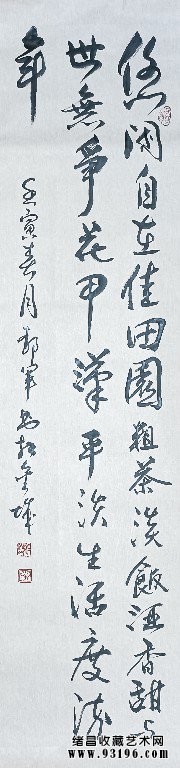 悠闲自在佳田园粗茶淡飯酒香甜与
世無争花甲漢平淡生活度流
年
壬寅春月郝军书於金城
绪昌收藏艺术网
www.93196.com